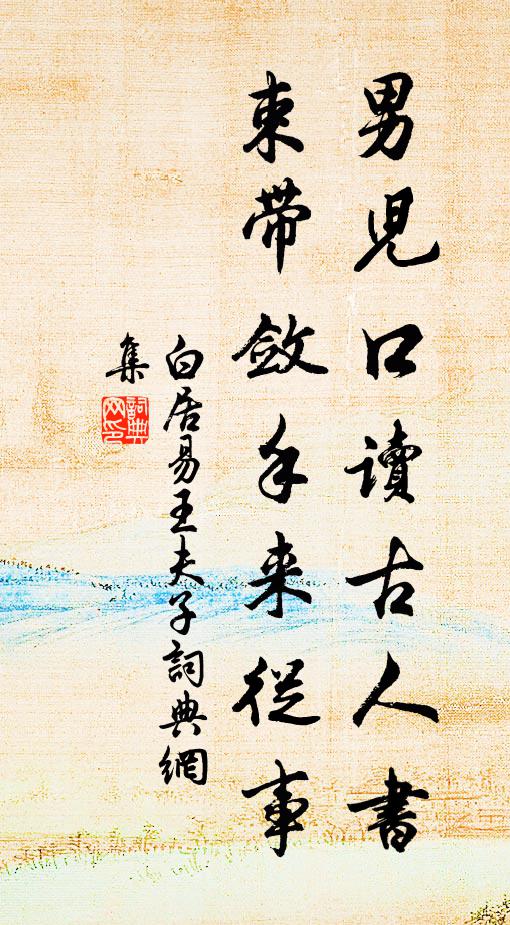 男児口讀古人書
束帶斂手来從事
白居易王夫子詞典網
集
詞典
网印